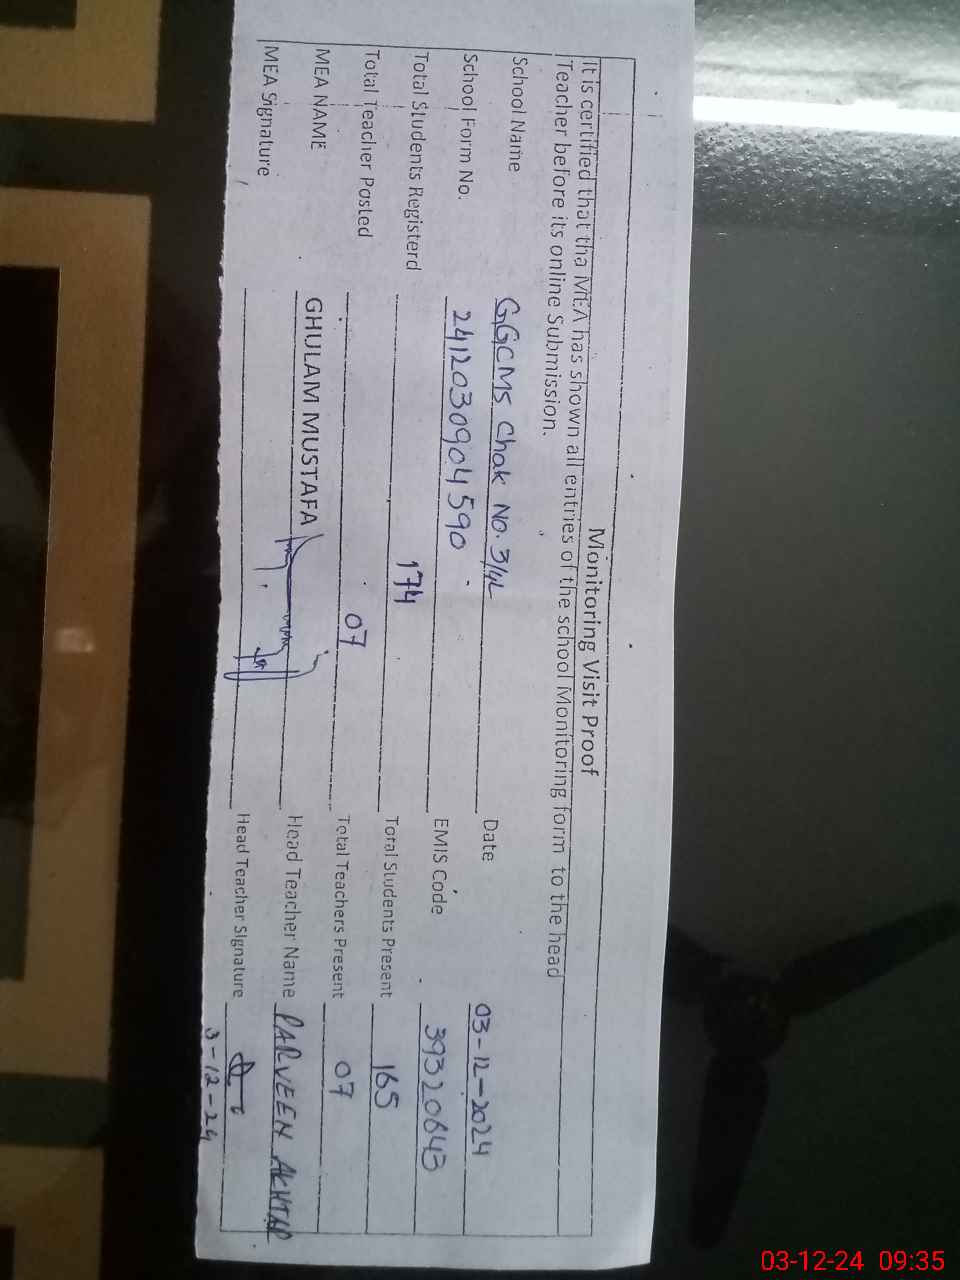 Monitoring Visit Proof
It is certified that tha MEA has shown all entries of the school Monitoring form to the head
Teacher before its online Submission.
School Name GGCMS Chak No. 3/4L Date 03-12-2024
School Form No. 2412030904590 EMIS Code 39320643
Total Students Registerd 174 Toral Students Present 165
Total Teacher Posted 07 Total Teachers Present 07
MEA NAME GHULAM MUSTAFA Head Teacher Name PARVEEN AKHTAR
MEA Signature Head Teacher Signature
3-12-24
03-12-24 09:35